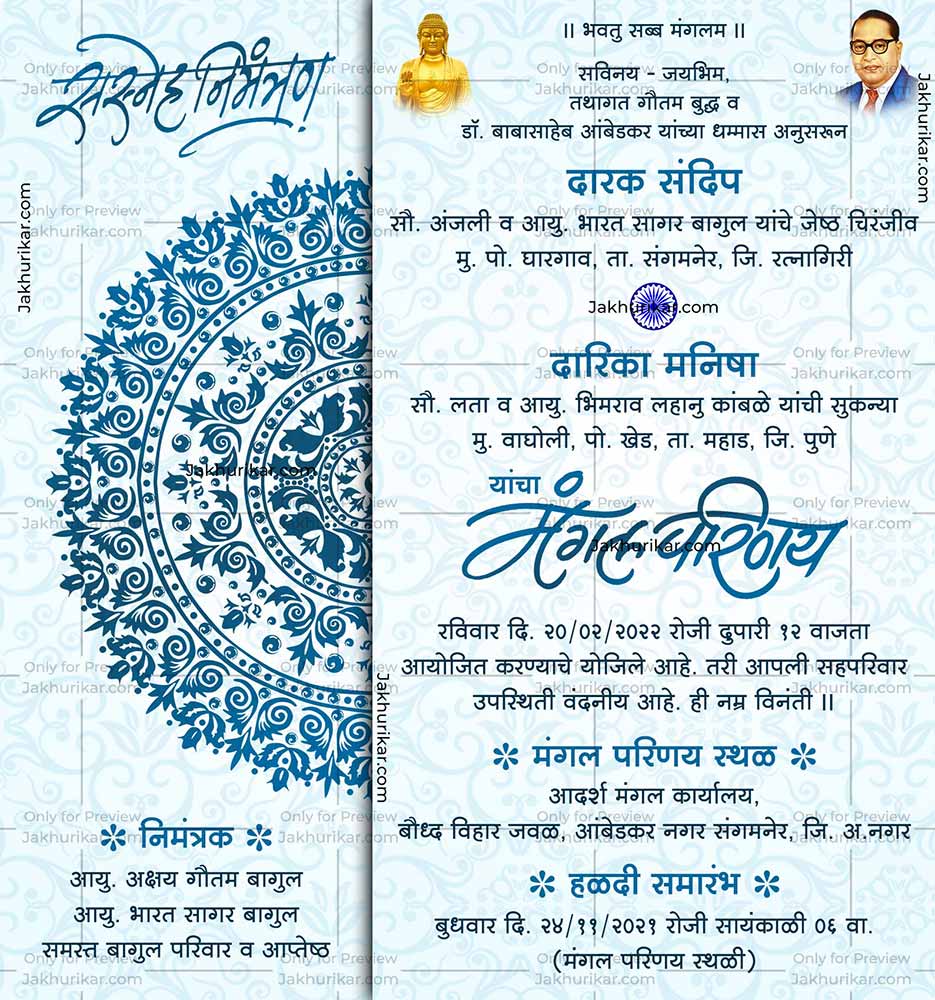 सस्नेह निमंत्रण
❇ निमंत्रक ❇
आयु. अक्षय गौतम बागुल
आयु. भारत सागर बागुल
समस्त बागुल परिवार व आप्तेष्ठ
॥ भवतु सब्ब मंगलम ॥
सविनय - जयभिम,
तथागत गौतम बुद्ध व
डॉ. बाबासाहेब आंबेडकर यांच्या धम्मास अनुसरून
दारक संदिप
सौ. अंजली व आयु. भारत सागर बागुल यांचे जेष्ठ चिरंजीव
मु. पो. घारगाव, ता. संगमनेर, जि. रत्नागिरी
Jakhurikar.com
दारिका मनिषा
सौ. लता व आयु. भिमराव लहानु कांबळे यांची सुकन्या
मु. वाघोली, पो. खेड, ता. महाड, जि. पुणे
यांचा
मंगल परिणय
रविवार दि. २०/०२/२०२२ रोजी दुपारी १२ वाजता
आयोजित करण्याचे योजिले आहे. तरी आपली सहपरिवार
उपस्थिती वंदनीय आहे. ही नम्र विनंती ॥
❇ मंगल परिणय स्थळ ❇
आदर्श मंगल कार्यालय,
बौध्द विहार जवळ, आंबेडकर नगर संगमनेर, जि. अ.नगर
❇ हळदी समारंभ ❇
बुधवार दि. २४/११/२०२१ रोजी सायंकाळी ०६ वा.
(मंगल परिणय स्थळी)
Only for Preview
Jakhurikar.com